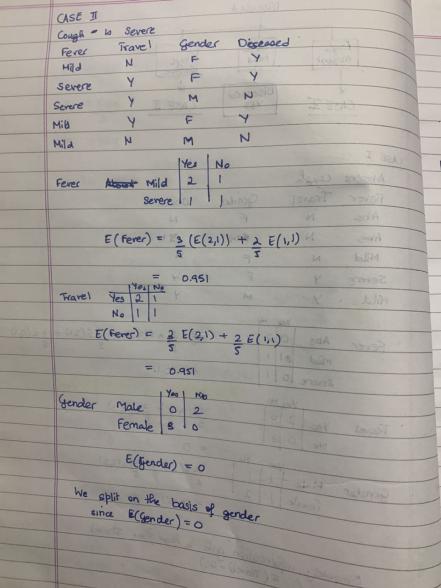 CASE II
Cough - is Severe
Fever Travel Gender Diseased
Mild N F Y
Severe Y F Y
Severe Y M N
Mild Y F Y
Mild N M N
Yes No
Fever Mild 2 1
Severe 1 1
E(Fever) = 3/5 (E(2,1)) + 2/5 E(1,1)
= 0.951
Yes No
Travel Yes 2 1
No 1 1
E(Fever) = 3/5 E(2,1) + 2/5 E(1,1)
= 0.951
Yes No
Gender Male 0 2
Female 3 0
E(Gender) = 0
We split on the basis of gender
since E(Gender) = 0